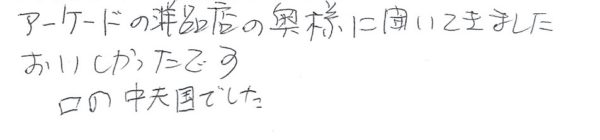 アーケードの洋品店の奥様に聞いてきました
おいしかったです
口の中天国でした